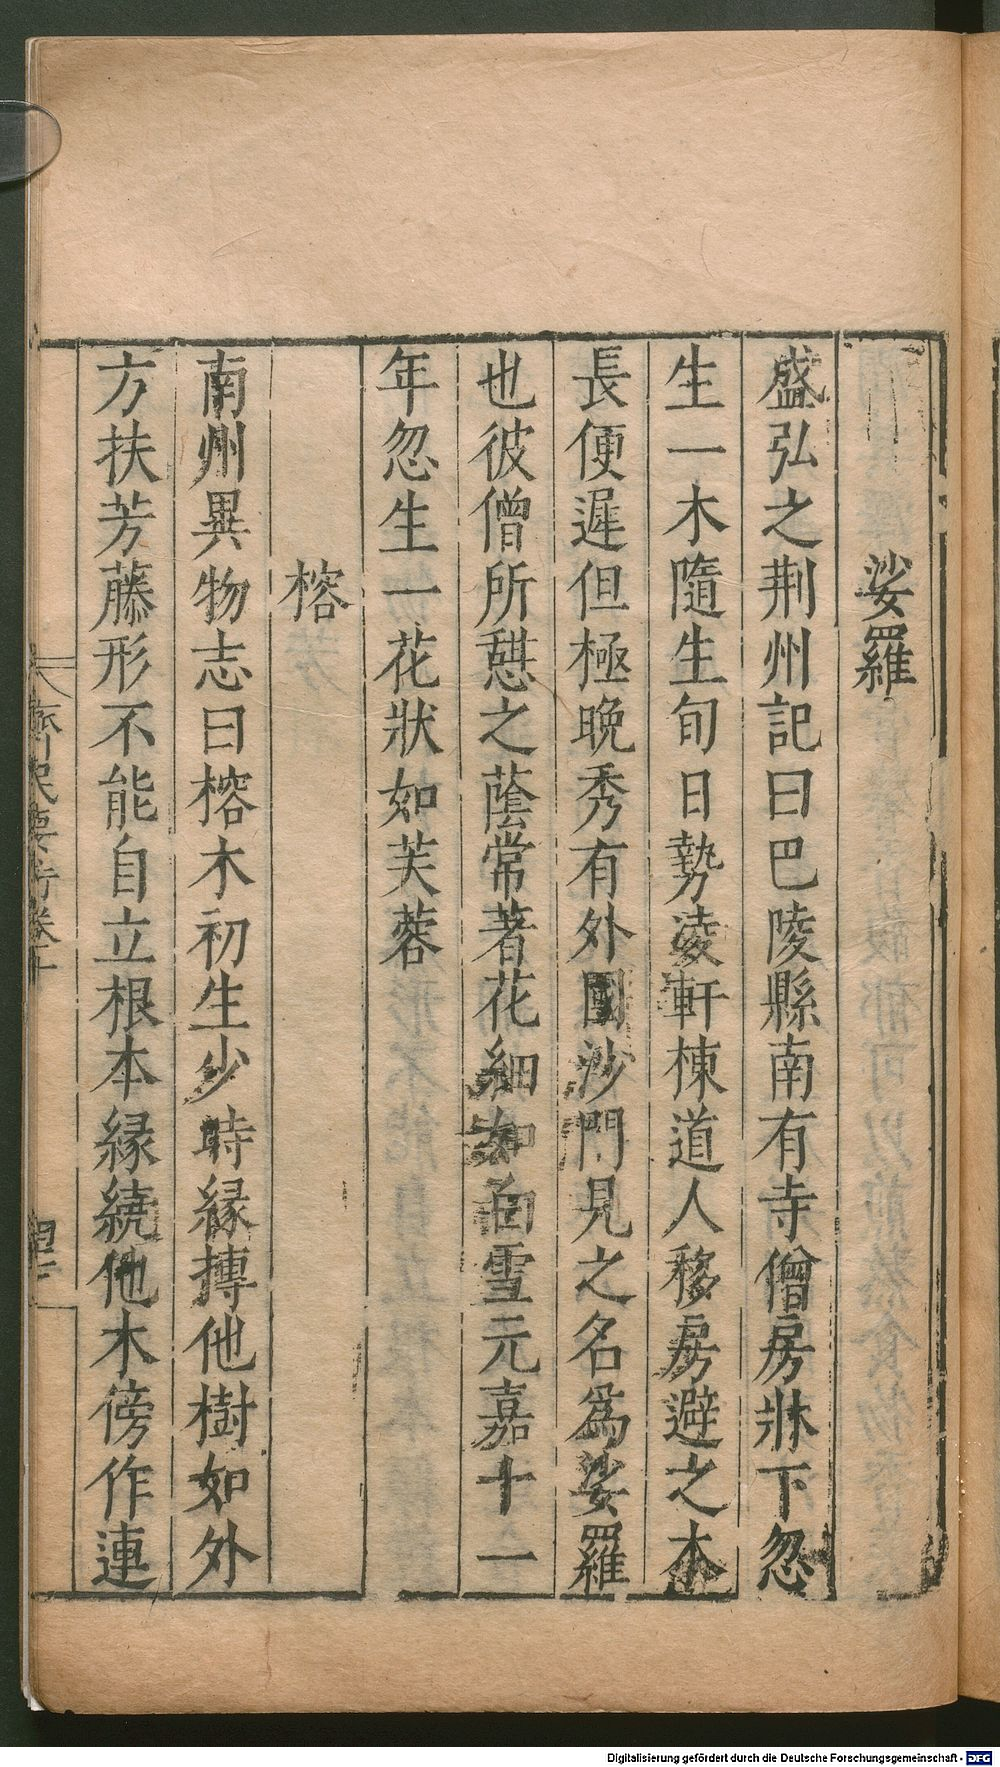 娑羅
盛弘之荆州記曰巴陵縣南有寺僧房牀下忽
生一木隨生旬日勢凌軒棟道人移房避之木
長便遲但極晚秀有外國沙門見之名爲娑羅
也彼僧所憇之蔭常著花細如白雪元嘉十一
年忽生一花狀如芙蓉
榕
南州異物志曰榕木初生少時緣摶他樹如外
方扶芳藤形不能自立根本緣繞他木傍作連
齊民要術卷十
Digitalisierung gefördert durch die Deutsche Forschungsgemeinschaft - DFG